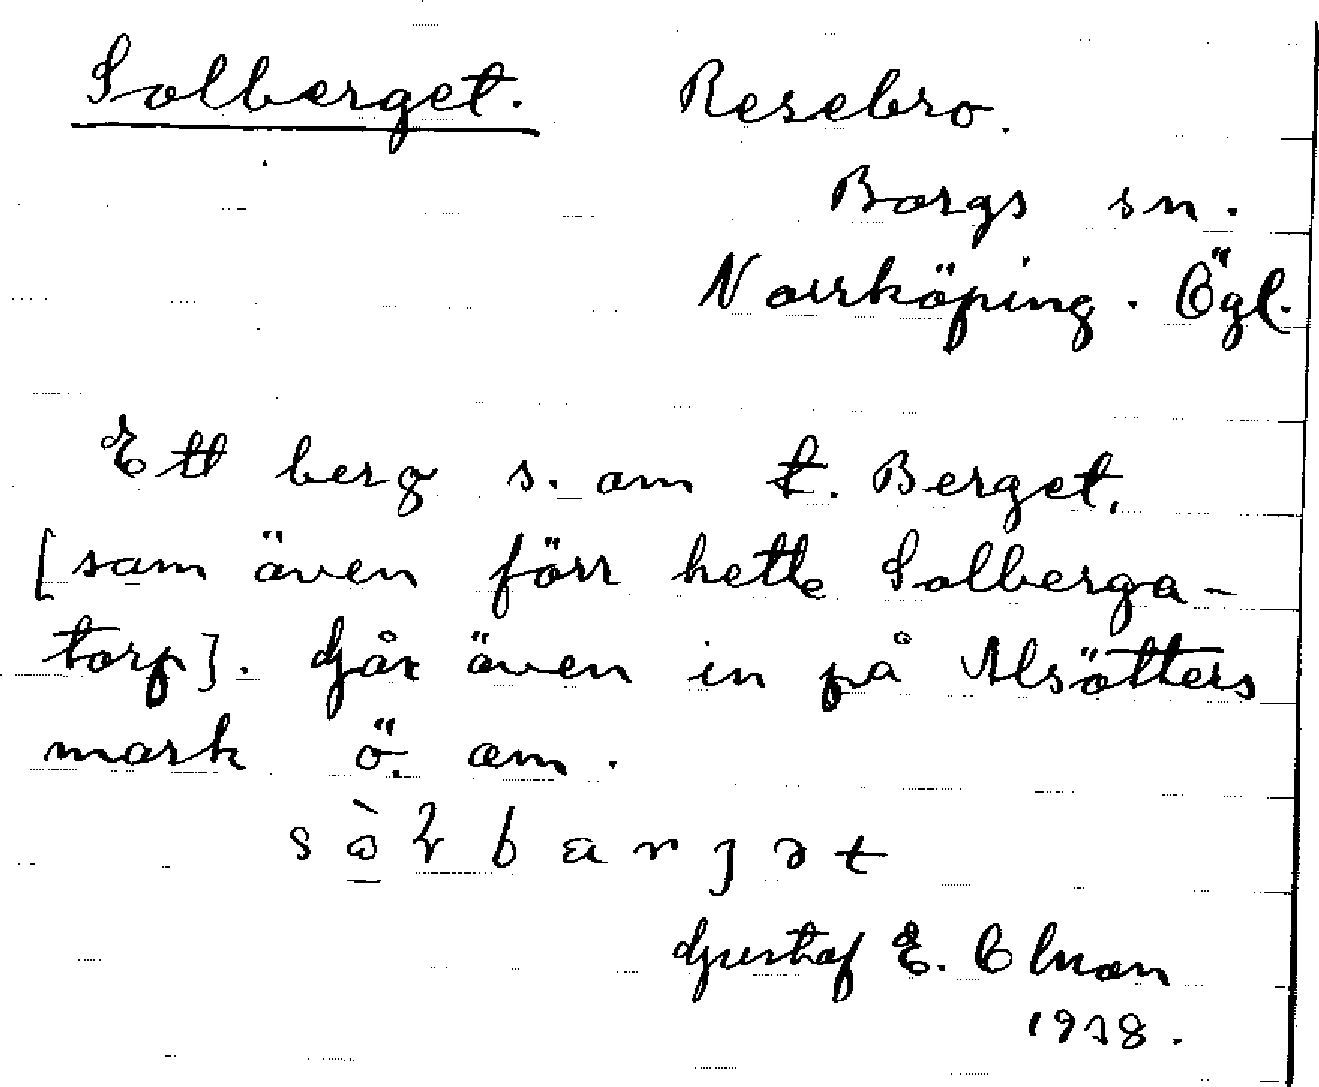 Solberget. Resebro.
Borgs sn.
Norrköping. Ögl.
Ett berg s. om t. Berget,
[som även förr hette Solberga-
torp]. Går även in på Alsätters
mark ö. om.
Gustaf E. Olson